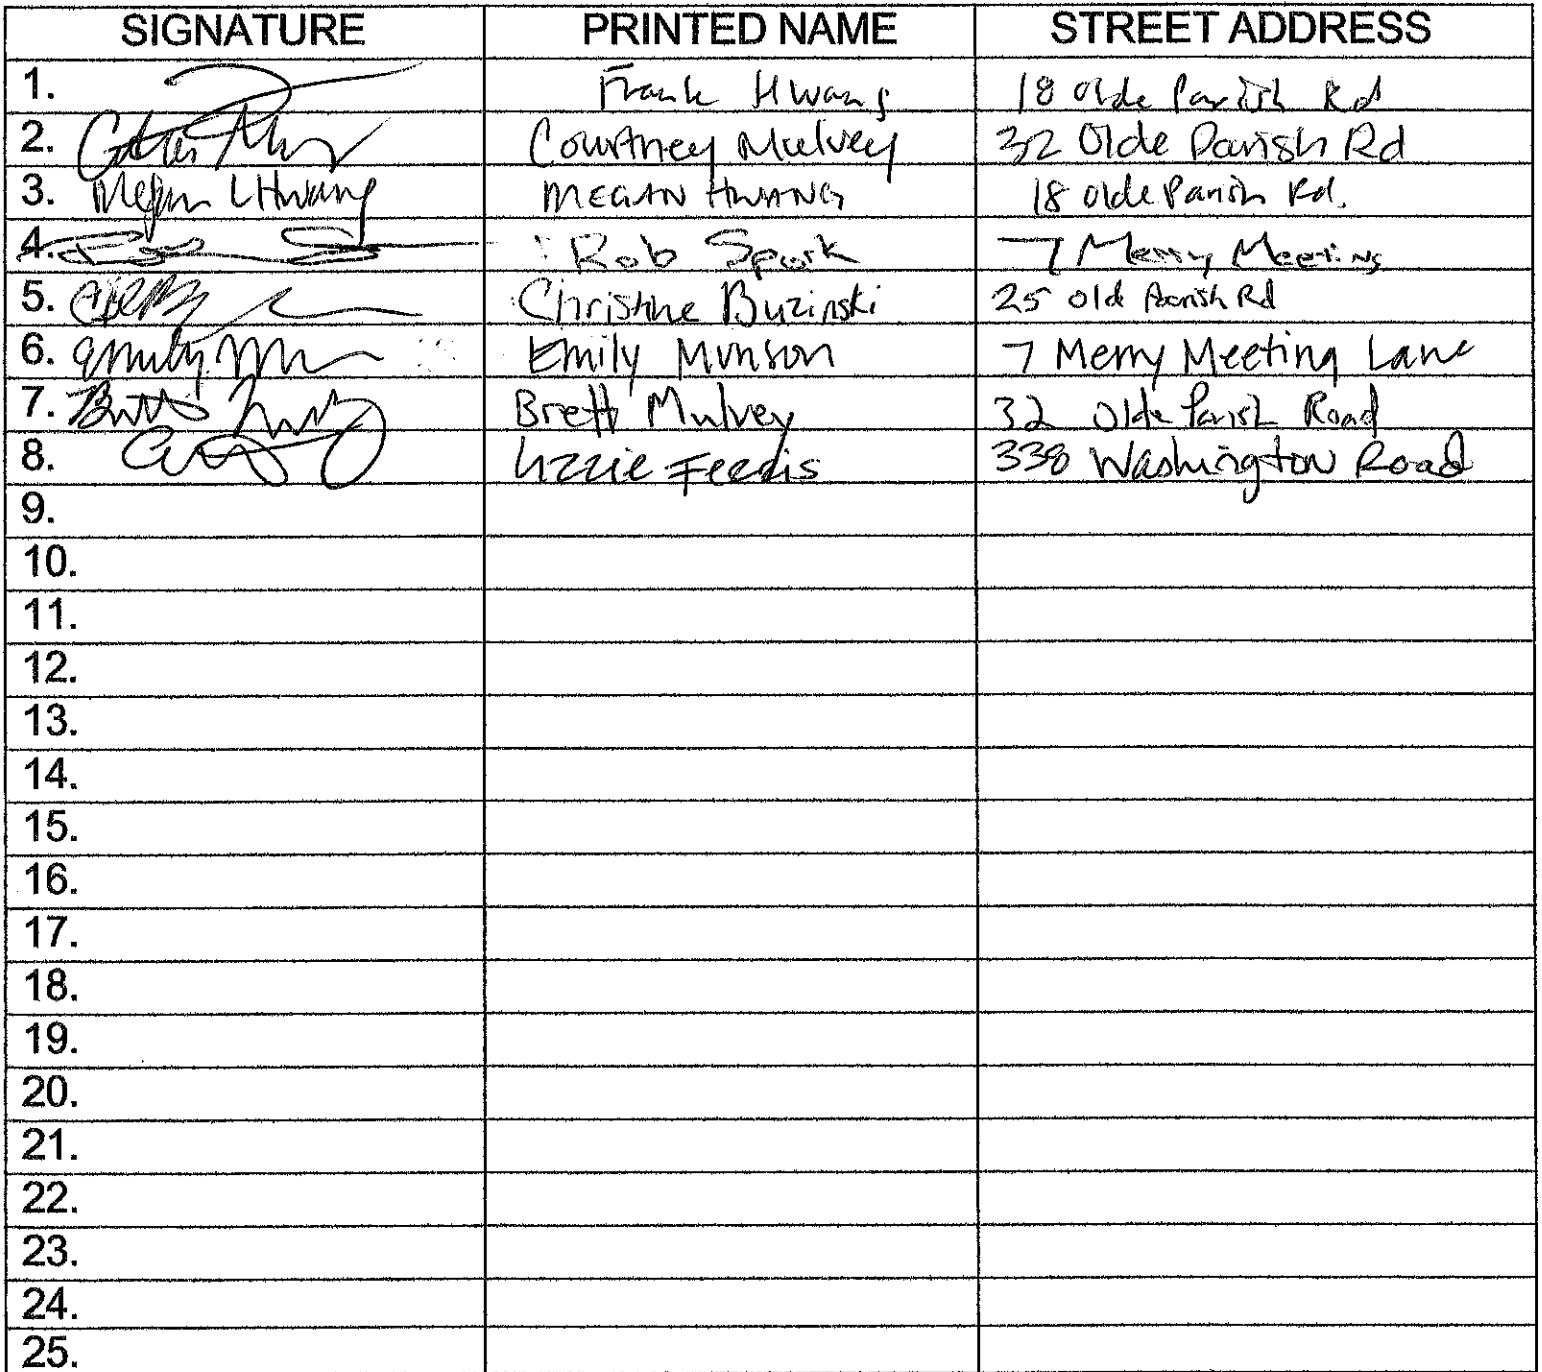 SIGNATURE PRINTED NAME STREET ADDRESS
1. Frank Hwang 18 Olde Parish Rd
2. Courtney Mulvey 32 Olde Parish Rd
3. Megan L Hwang MEGAN HWANG 18 olde Parish Rd.
4. Rob Spark 7 Merry Meeting
5. Christine Buzinski 25 old Parish Rd
6. Emily M Emily Munson 7 Merry Meeting Lane
7. Brett Mulvey 32 Olde Parish Road
8. Lizzie Feedis 338 Washington Road
9.
10.
11.
12.
13.
14.
15.
16.
17.
18.
19.
20.
21.
22.
23.
24.
25.